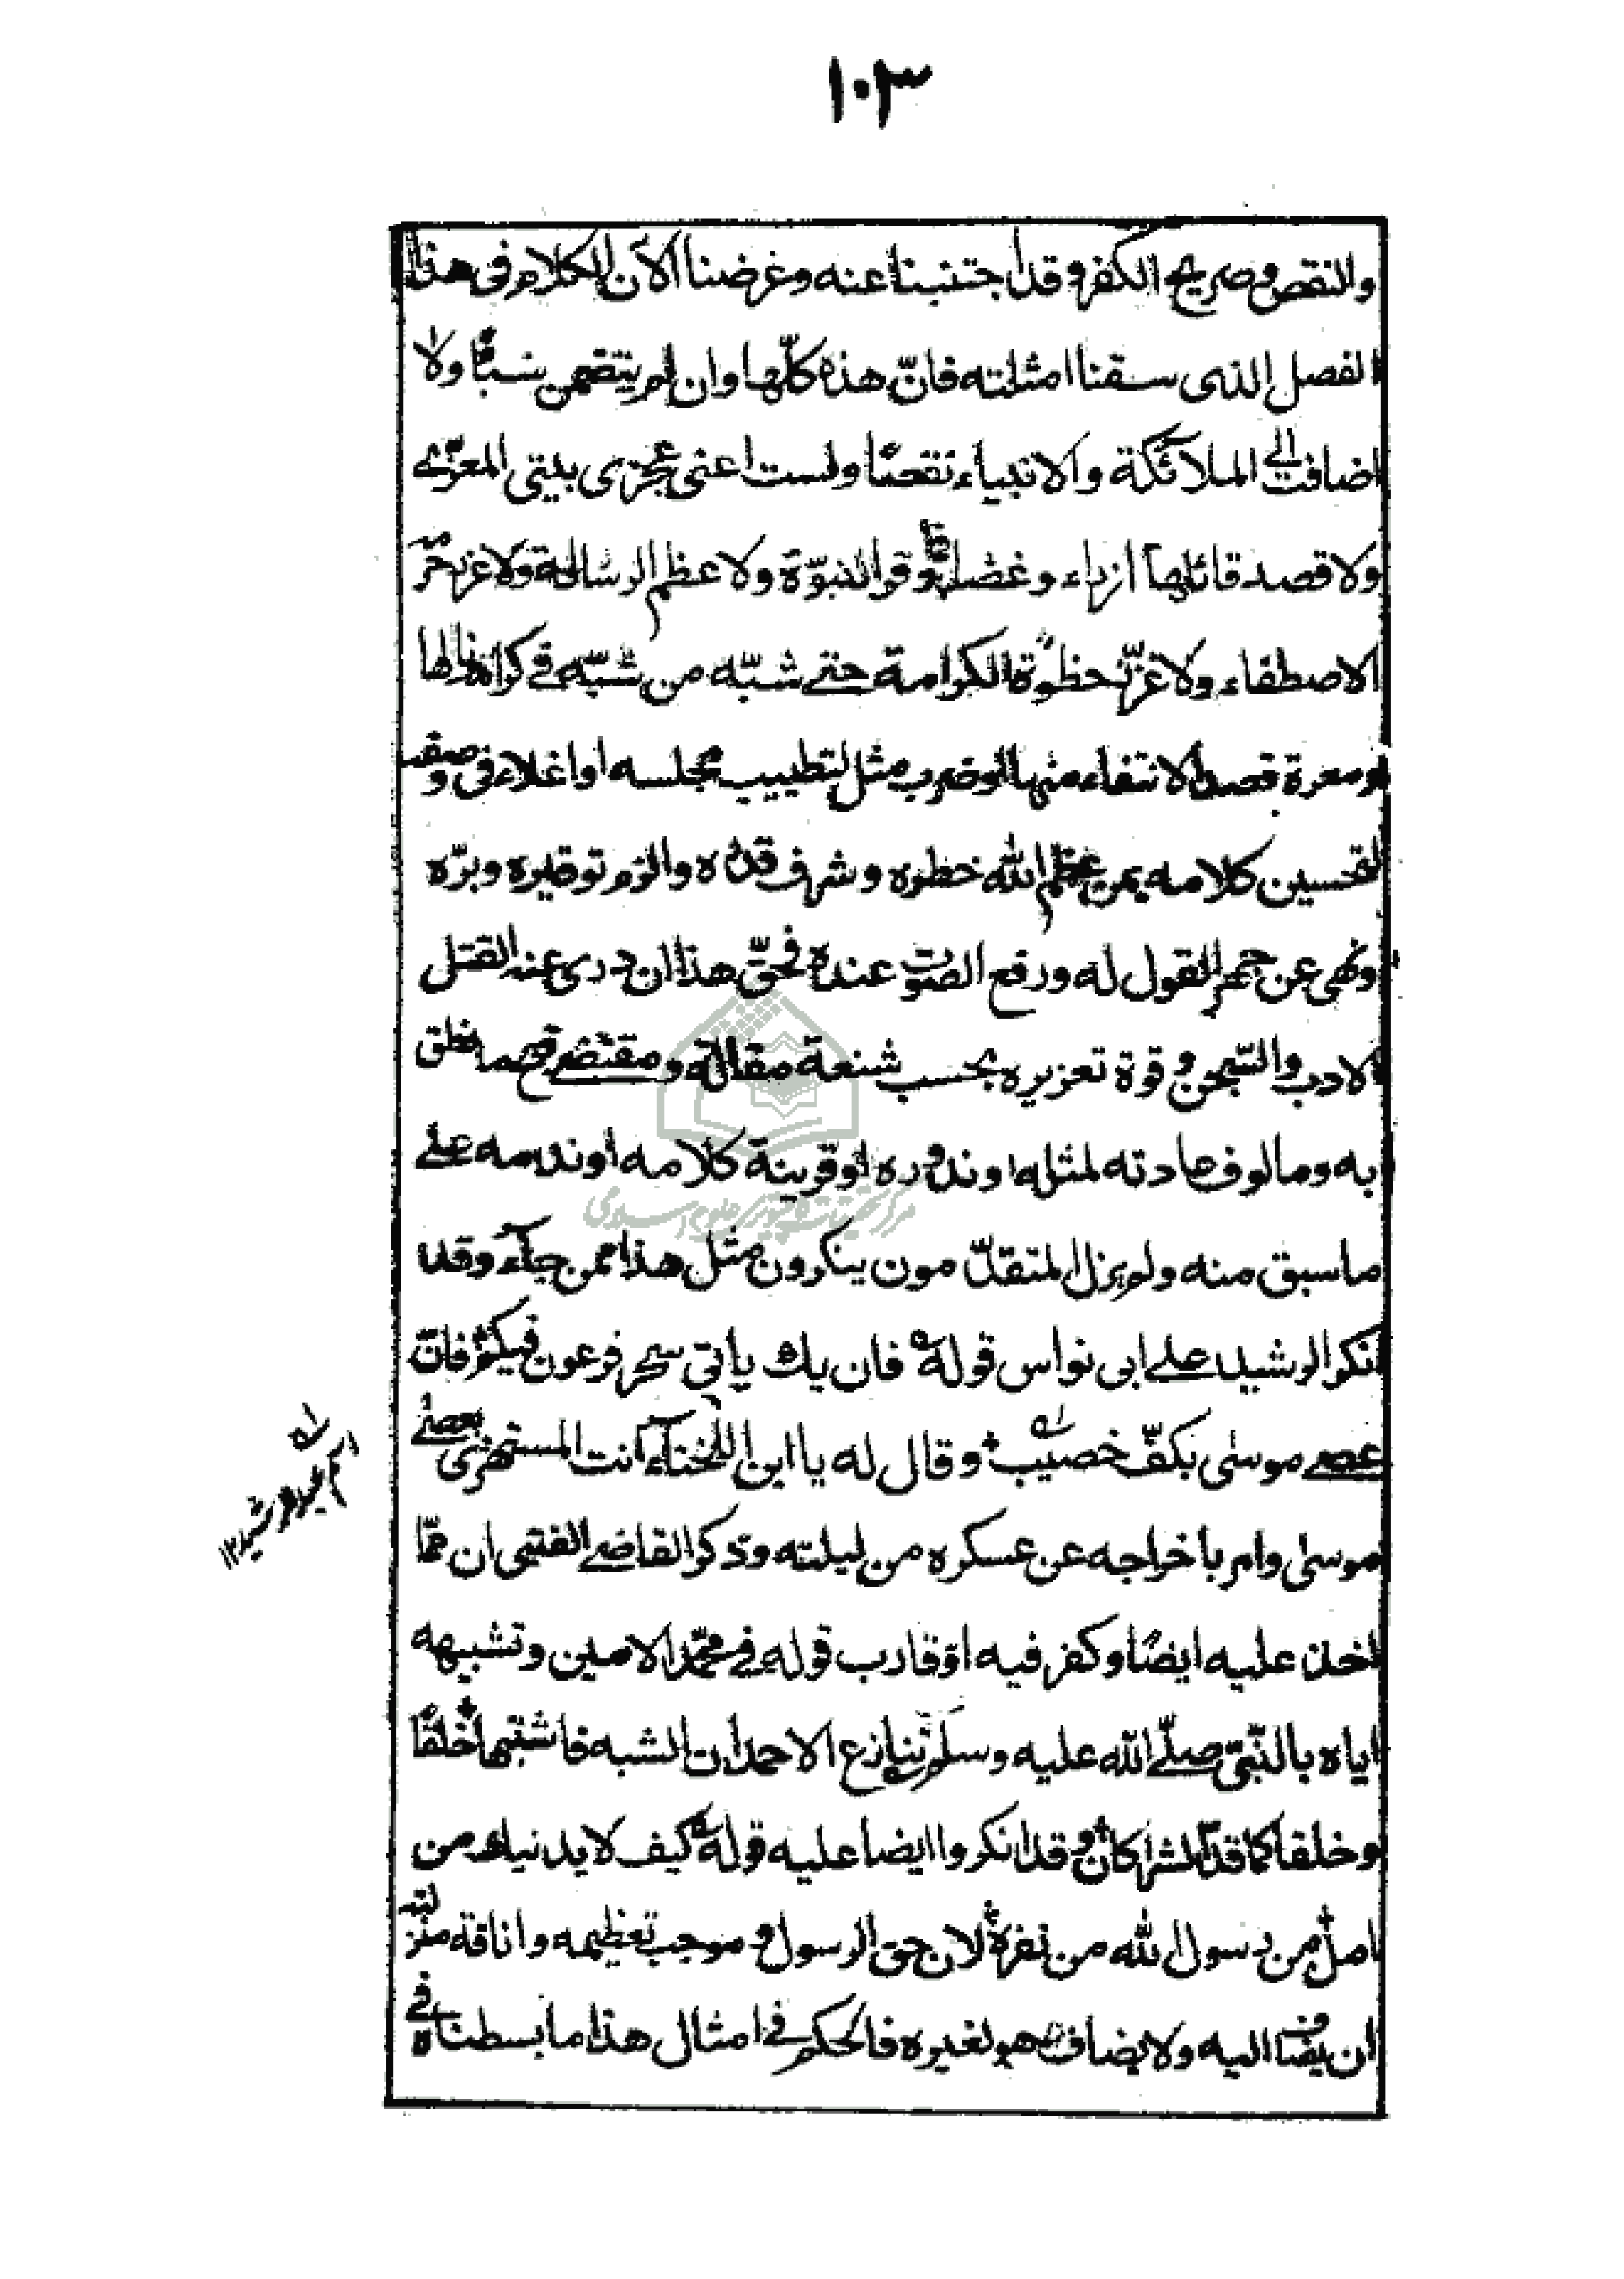 ١٠٣
والنقص وصريح الكفر وقد اجتنبنا عنه وغرضنا الآن الكلام فى هذا
الفصل الذى سقنا امثلته فانّ هذه كلّها وان لم يتضمن سبًّا ولا
اضافت الى الملائكة والانبياء نقصًا ولست اعنى عجزى بيتى المعرّى
ولا قصد قائلها ازراء وغضا فما وقر النبوّة ولا عظم الرسالة ولا عزر حرمة
الاصطفاء ولا عزّز حظوة الكرامة حتى شبّه من شبّه فى كرامة نالها
او معرة قصد الانتفاء منها او ضرب مثل لتطييب مجلسه او اغلاء فى وصف
لتحسين كلامه بمن عظم الله خطره وشرف قدره والزم توقيره وبرّه
ونهى عن جهر القول له ورفع الصوت عنده فحقّ هذا ان درى عنه القتل
الادب والسّجن وقوة تعزيره بحسب شنعة مقالته ومقتضى قبح ما نطق
به ومالوف عادته لمثله او ندوره او قرينة كلامه او ندمه على
ما سبق منه ولم يزل المتقدّمون ينكرون مثل هذا ممن جآء وقد
انكر الرشيد على ابى نواس قوله فان يك باقى سحر فرعون فيكم فانّ
عصى موسى بكفّ خصيب وقال له يا ابن اللخنآء أنت المستهزى بعصى
موسى وامر باخراجه عن عسكره من ليلته وذكر القاضى القتبى ان ممّا
اخذ عليه ايضًا وكفر فيه او قارب قوله فى محمّد الامين وتشبيهه
اياه بالنّبىّ صلّى الله عليه وسلم تنازع الاحمدان الشبه فاشتبها خُلقًا
وخلقا كما قدّ الشراكان وقد انكروا ايضا عليه قوله كيف لا يدنيك من
امل من رسول الله من نفره لان حق الرسول وموجب تعظيمه واناقة منزلته
ان يضاف اليه ولا يضاف هو لغيره فالحكم فى امثال هذا ما بسطناه فى